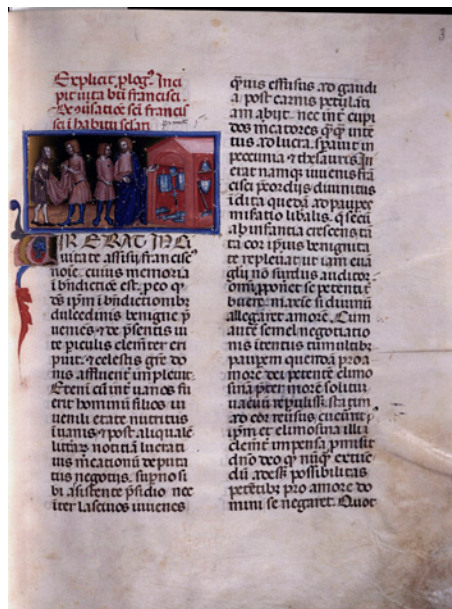 3
Explicit plog⁹. Inci
pit uita bti francisci.
De ꝯũsatiõe sci francis
sci i habitu sclari
VIR ERAT IN C
iuitate assisij francisc⁹
noĩe. cuius memoria
i bñdictiõe est. p eo q
ds ipm i bñdictionibꝫ
dulcedinis benigne p
ueniẽs ⁊ de pñsentis ui
te piculis clemẽter eri
puit. ⁊ celestis grẽ do
nis affluent̃ impleuit.
Etenĩ cũ int̃ uanos fu
erit hominũ filios iu
uenili etate nutritus
i uanis. ⁊ post aliqualẽ
litt̃aꝝ notitiã lucrati
uis mcationũ deputa
tus negotijs. supno si
bi assistente p̃sidio nec
int̃er lasciuos iuuenes
q̃uis effusus ad gaudi
a. post carnis petulãti
am abijt. nec int̃ cupi
dos mcatores q̃q̃ inte
tus ad lucra. spauit in
peccunia ⁊ thesauris. In
erat namq iuuenis frã
cisci pcordijs diuinitus
idita quedã ad paupes
misatio libalis. q̃ secũ
ab infantia crescens tã
ta cor ipsius benignita
te repleuat. ut iam euã
glij nõ surdus auditor
omĩ ppoñet se petenti t̃
buere. maxie si diuinũ
allegaret amorẽ. Cum
autẽ semel negotiatio
nis itentus tumultibꝫ
paupem quendã p a
more dei petentẽ elimo
sinã pter morẽ solitũ
uacuũ repulisset. statim
ad cor reusus cucurrit p
ipm et elimosina illi
clemẽt̃ impensa pmisit
dño deo q nũq̃ extũc
dũ adesset possibilitas
petẽtibꝫ pro amore do
mini se negaret. Quot